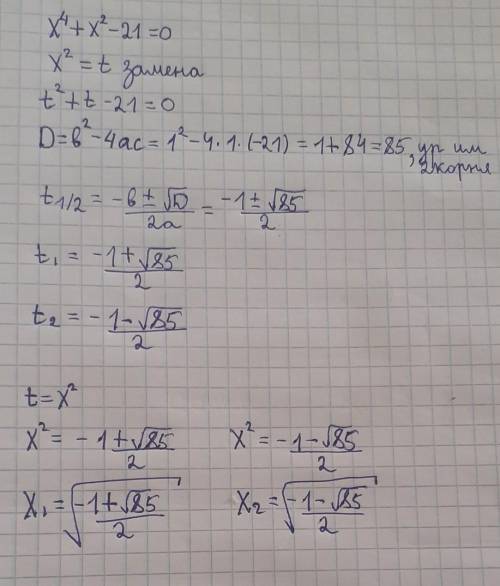 x⁴ + x² - 21 = 0
x² = t замена
t² + t - 21 = 0
D = в² - 4ac = 1² - 4 · 1 · (-21) = 1 + 84 = 85, ур им
2 корня
t1/2 = (-в ± √D)/2a = (-1 ± √85)/2
t₁ = (-1 + √85)/2
t₂ = (-1 - √85)/2
t = x²
x² = (-1 + √85)/2 x² = (-1 - √85)/2
x₁ = √((-1 + √85)/2) x₂ = √((-1 - √85)/2)